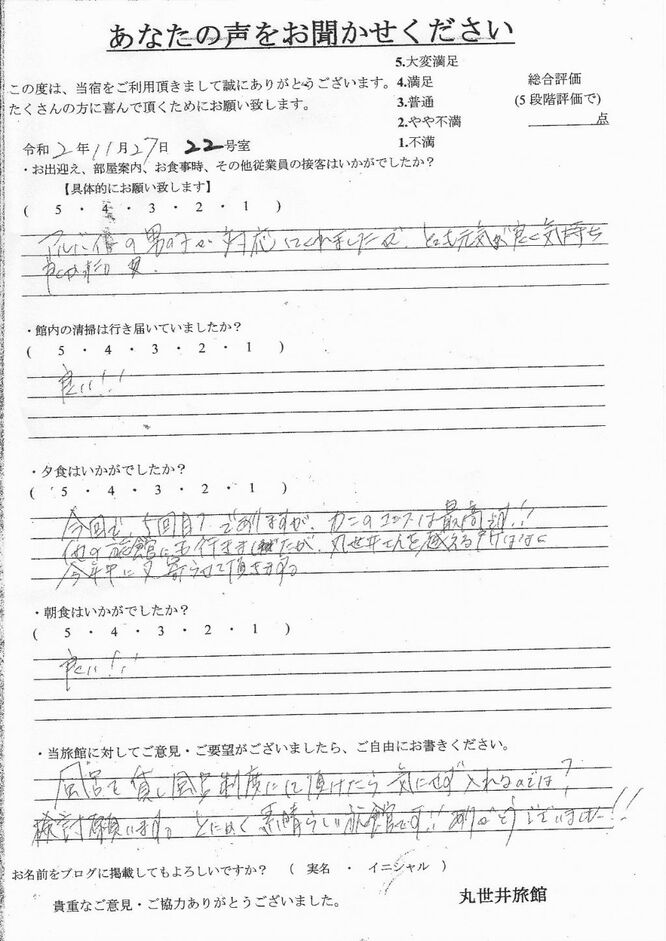 あなたの声をお聞かせください
この度は、当宿をご利用頂きまして誠にありがとうございます。
たくさんの方に喜んで頂くためにお願い致します。
5.大変満足
4.満足
3.普通
2.やや不満
1.不満
総合評価
(5段階評価で)
点
令和2年11月27日 22号室
・お出迎え、部屋案内、お食事時、その他従業員の接客はいかがでしたか?
【具体的にお願い致します】
( 5 ・ 4 ・ 3 ・ 2 ・ 1 )
アルバイトの男の子が対応してくれましたが、とても元気が良く気持ち
良かった
・館内の清掃は行き届いていましたか?
( 5 ・ 4 ・ 3 ・ 2 ・ 1 )
良い!!
・夕食はいかがでしたか?
( 5 ・ 4 ・ 3 ・ 2 ・ 1 )
今回で、5回目でありますが、カニのコースは最高です!!
他の旅館にも行きましたが、丸世井さんを越える
今年中に又寄らせて頂きます。
・朝食はいかがでしたか?
( 5 ・ 4 ・ 3 ・ 2 ・ 1 )
良い!!
・当旅館に対してご意見・ご要望がございましたら、ご自由にお書きください。
風呂を貸し風呂制度にして頂けたら気にせず入れるのでは?
検討願います。とにかく素晴らしい旅館です!!ありがとうございました!!
お名前をブログに掲載してもよろしいですか? ( 実名 ・ イニシャル )
貴重なご意見・ご協力ありがとうございました。
丸世井旅館